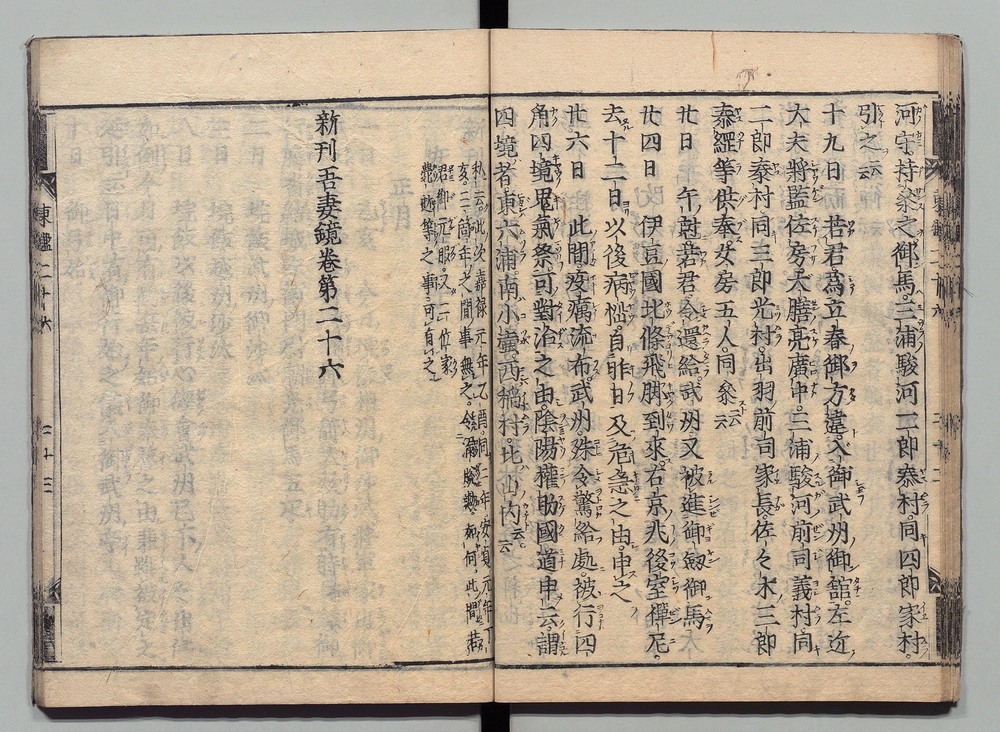 河守持泰之御馬三浦駿河二郎泰村同四郎家村
引之云云
十九日 若君爲立春御方違入御武州御舘左近
大夫將監佐房大膳亮廣中三浦駿河前司義村同
二郎泰村同三郎光村出羽前司家長佐々木三郎
泰經等供奉女房五人同參云云
廿日 午尅若君令還給武州又被進御劔御馬
廿四日 伊豆國北條飛脚到來右京兆後室禪尼
去十二日以後病惱自昨日及危急之由申之
廿六日 此間疫癘流布武州殊令驚給處被行四
角四境鬼氣祭可對治之由陰陽權助國道申云謂
四境者東六浦南小壷西稲村北山内云云
私云此次嘉禄元年乙酉同二年安貞元年丁
亥三箇年之間事無之令漏脱歟如何此間若
君御元服又二位家
薨逝等之事可有之
新刊吾妻鏡卷第二十六
東鑑二十六
二十三